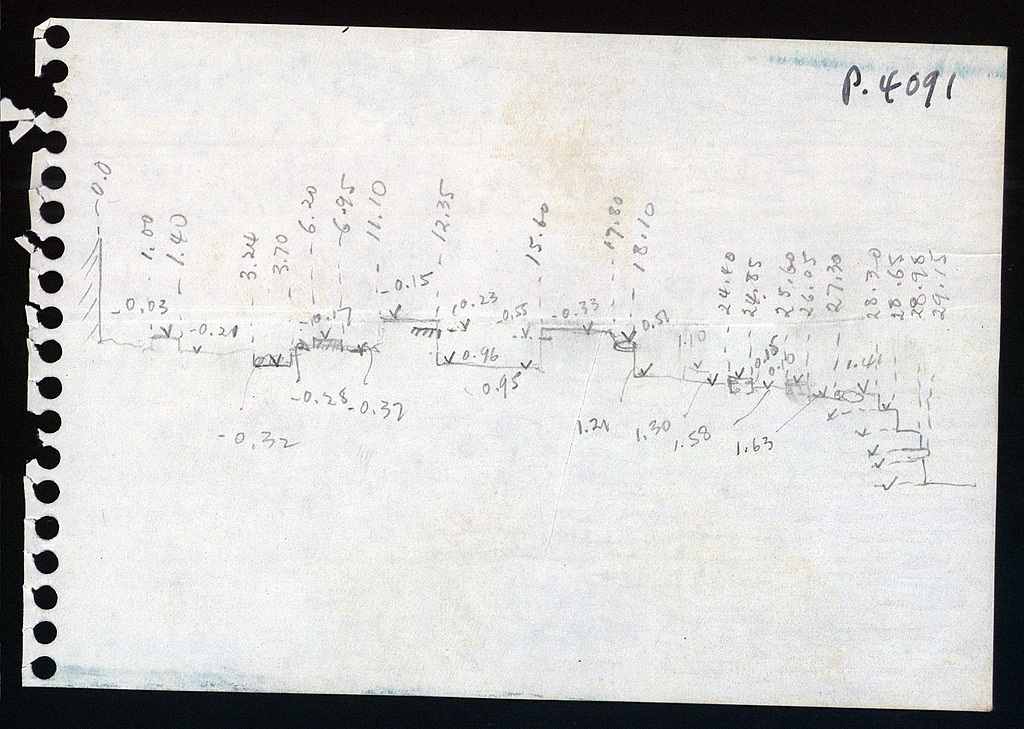 P.4091
0.0
1.00
1.40
3.24
3.70
6.20
6.95
11.10
12.35
15.60
17.80
18.10
24.40
24.85
25.60
26.05
27.30
28.30
28.65
28.98
29.15
-0.03
-0.21
-0.17
-0.15
-0.23
-0.55
-0.33
-0.51
1.10
0.96
0.95
-0.28
-0.37
-0.32
1.21
1.30
1.58
1.63
1.41